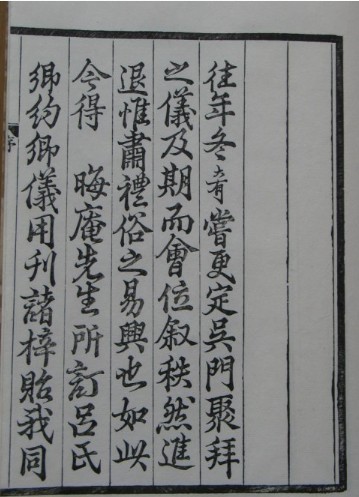 往年冬大有嘗更定吳門聚拜
之儀及期而會位叙秩然進
退惟肅禮俗之易興也如此
今得　晦庵先生所訂呂氏
鄉約鄉儀用刊諸梓貽我同
序